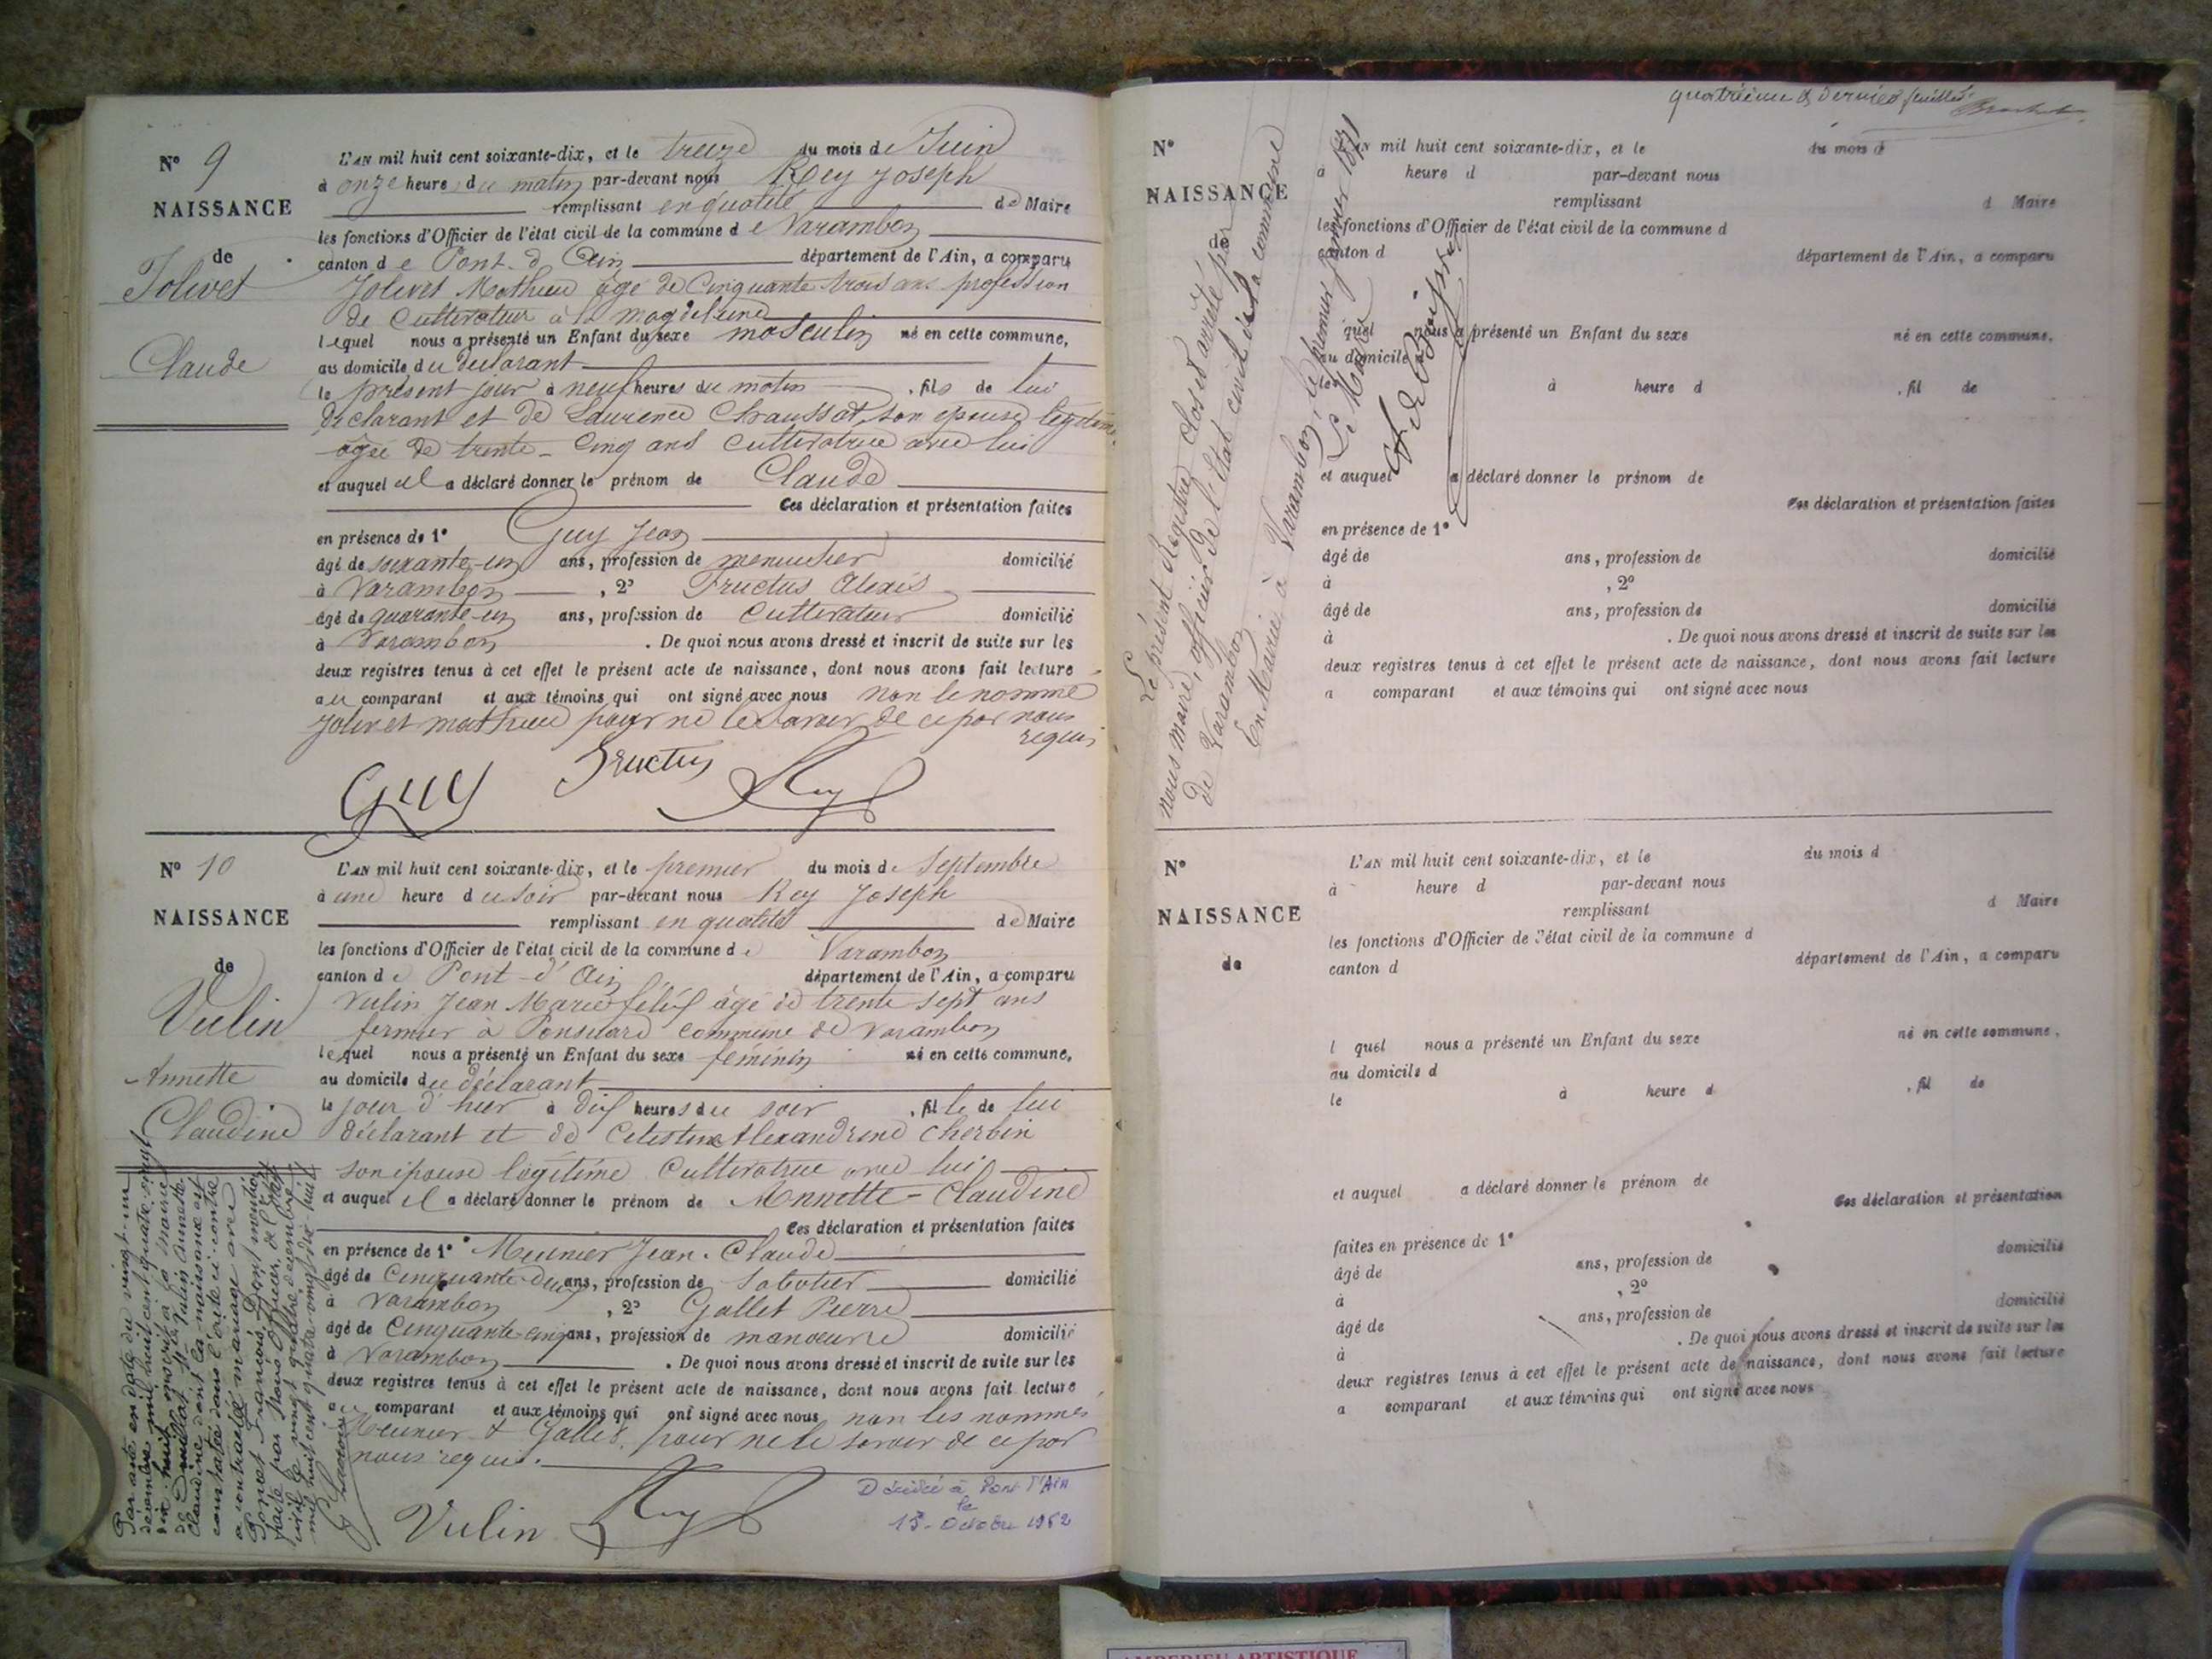 N° 9
NAISSANCE
de
Jolivet
Claude
L'AN mil huit cent soixante-dix, et le treize du mois de Juin
à onze heures du matin par-devant nous Rey Joseph
remplissant en qualité de Maire
les fonctions d'Officier de l'état civil de la commune de Varambon
canton de Pont-d'Ain département de l'Ain, a comparu
Jolivet Mathieu âgé de Cinquante trois ans profession
de Cultivateur à la Magdeleine
lequel nous a présenté un Enfant du sexe masculin né en cette commune,
au domicile du déclarant
le présent jour à neuf heures du matin , fils de lui
déclarant et de Laurence Chaussat, son épouse légitime
âgée de trente-cinq ans Cultivatrice avec lui
et auquel il a déclaré donner le prénom de Claude
Ces déclaration et présentation faites
en présence de 1° Guy Jean
âgé de soixante-un ans, profession de menuisier domicilié
à Varambon , 2° Fructus Alexis
âgé de quarante-un ans, profession de Cultivateur domicilié
à Varambon . De quoi nous avons dressé et inscrit de suite sur les
deux registres tenus à cet effet le présent acte de naissance, dont nous avons fait lecture
au comparant et aux témoins qui ont signé avec nous non le nommé
Jolivet Mathieu pour ne le savoir de ce par nous
requis
Guy Fructus Rey
N° 10
NAISSANCE
de
Vulin
Annette
Claudine
L'AN mil huit cent soixante-dix, et le premier du mois de Septembre
à une heure du soir par-devant nous Rey Joseph
remplissant en qualité de Maire
les fonctions d'Officier de l'état civil de la commune de Varambon
canton de Pont-d'Ain département de l'Ain, a comparu
Vulin Jean Marie félix âgé de trente sept ans
fermier à Ponsuard commune de Varambon
lequel nous a présenté un Enfant du sexe féminin né en cette commune,
au domicile du déclarant
le jour d'hier à dix heures du soir , fille de lui
déclarant et de Celestine Alexandrine Cherbin
son épouse légitime Cultivatrice avec lui
et auquel il a déclaré donner le prénom de Annette-Claudine
Ces déclaration et présentation faites
en présence de 1° Meunier Jean-Claude
âgé de Cinquante-deux ans, profession de Sabotier domicilié
à Varambon , 2° Gallet Pierre
âgé de Cinquante-cinq ans, profession de manoeuvre domicilié
à Varambon . De quoi nous avons dressé et inscrit de suite sur les
deux registres tenus à cet effet le présent acte de naissance, dont nous avons fait lecture
au comparant et aux témoins qui ont signé avec nous non les nommés
Meunier & Gallet pour ne le savoir de ce par
nous requis.
Vulin Rey
Décédée à Pont d'Ain
le
15 Octobre 1952
Par acte en date du vingt-un
décembre mil huit cent quatre-vingt
dix huit inscrit à la mairie
de Vulin Annette
Claudine dont la naissance est
constatée dans l'acte ci-contre
a contracté mariage avec
Poncet François. Dont mention
faite par Nous Officier de l'état
civil le vingt quatre décembre
mil huit cent quatre vingt dix huit
quatrième & dernier feuillet
N°
NAISSANCE
L'AN mil huit cent soixante-dix, et le du mois d
à heure d par-devant nous
remplissant d Maire
les fonctions d'Officier de l'état civil de la commune d
canton d département de l'Ain, a comparu
quel nous a présenté un Enfant du sexe né en cette commune,
au domicile
le à heure d , fil de
et auquel a déclaré donner le prénom de
Ces déclaration et présentation faites
en présence de 1°
âgé de ans, profession de domicilié
à , 2°
âgé de ans, profession de domicilié
à . De quoi nous avons dressé et inscrit de suite sur les
deux registres tenus à cet effet le présent acte de naissance, dont nous avons fait lecture
a comparant et aux témoins qui ont signé avec nous
Le présent Registre clos et arrêté par
nous maire, officier de l'état civil de la commune
de Varambon
En Mairie à Varambon, le premier janvier 1871
Le Maire
N°
NAISSANCE
de
L'AN mil huit cent soixante-dix, et le du mois d
à heure d par-devant nous
remplissant d Maire
les fonctions d'Officier de l'état civil de la commune d
canton d département de l'Ain, a comparu
l quel nous a présenté un Enfant du sexe né en cette commune,
au domicile d
le à heure d , fil de
et auquel a déclaré donner le prénom de
Ces déclaration et présentation
faites en présence de 1°
âgé de ans, profession de domicilié
à , 2°
âgé de ans, profession de domicilié
à . De quoi nous avons dressé et inscrit de suite sur les
deux registres tenus à cet effet le présent acte de naissance, dont nous avons fait lecture
a comparant et aux témoins qui ont signé avec nous
AMBERIEU ARTISTIQUE